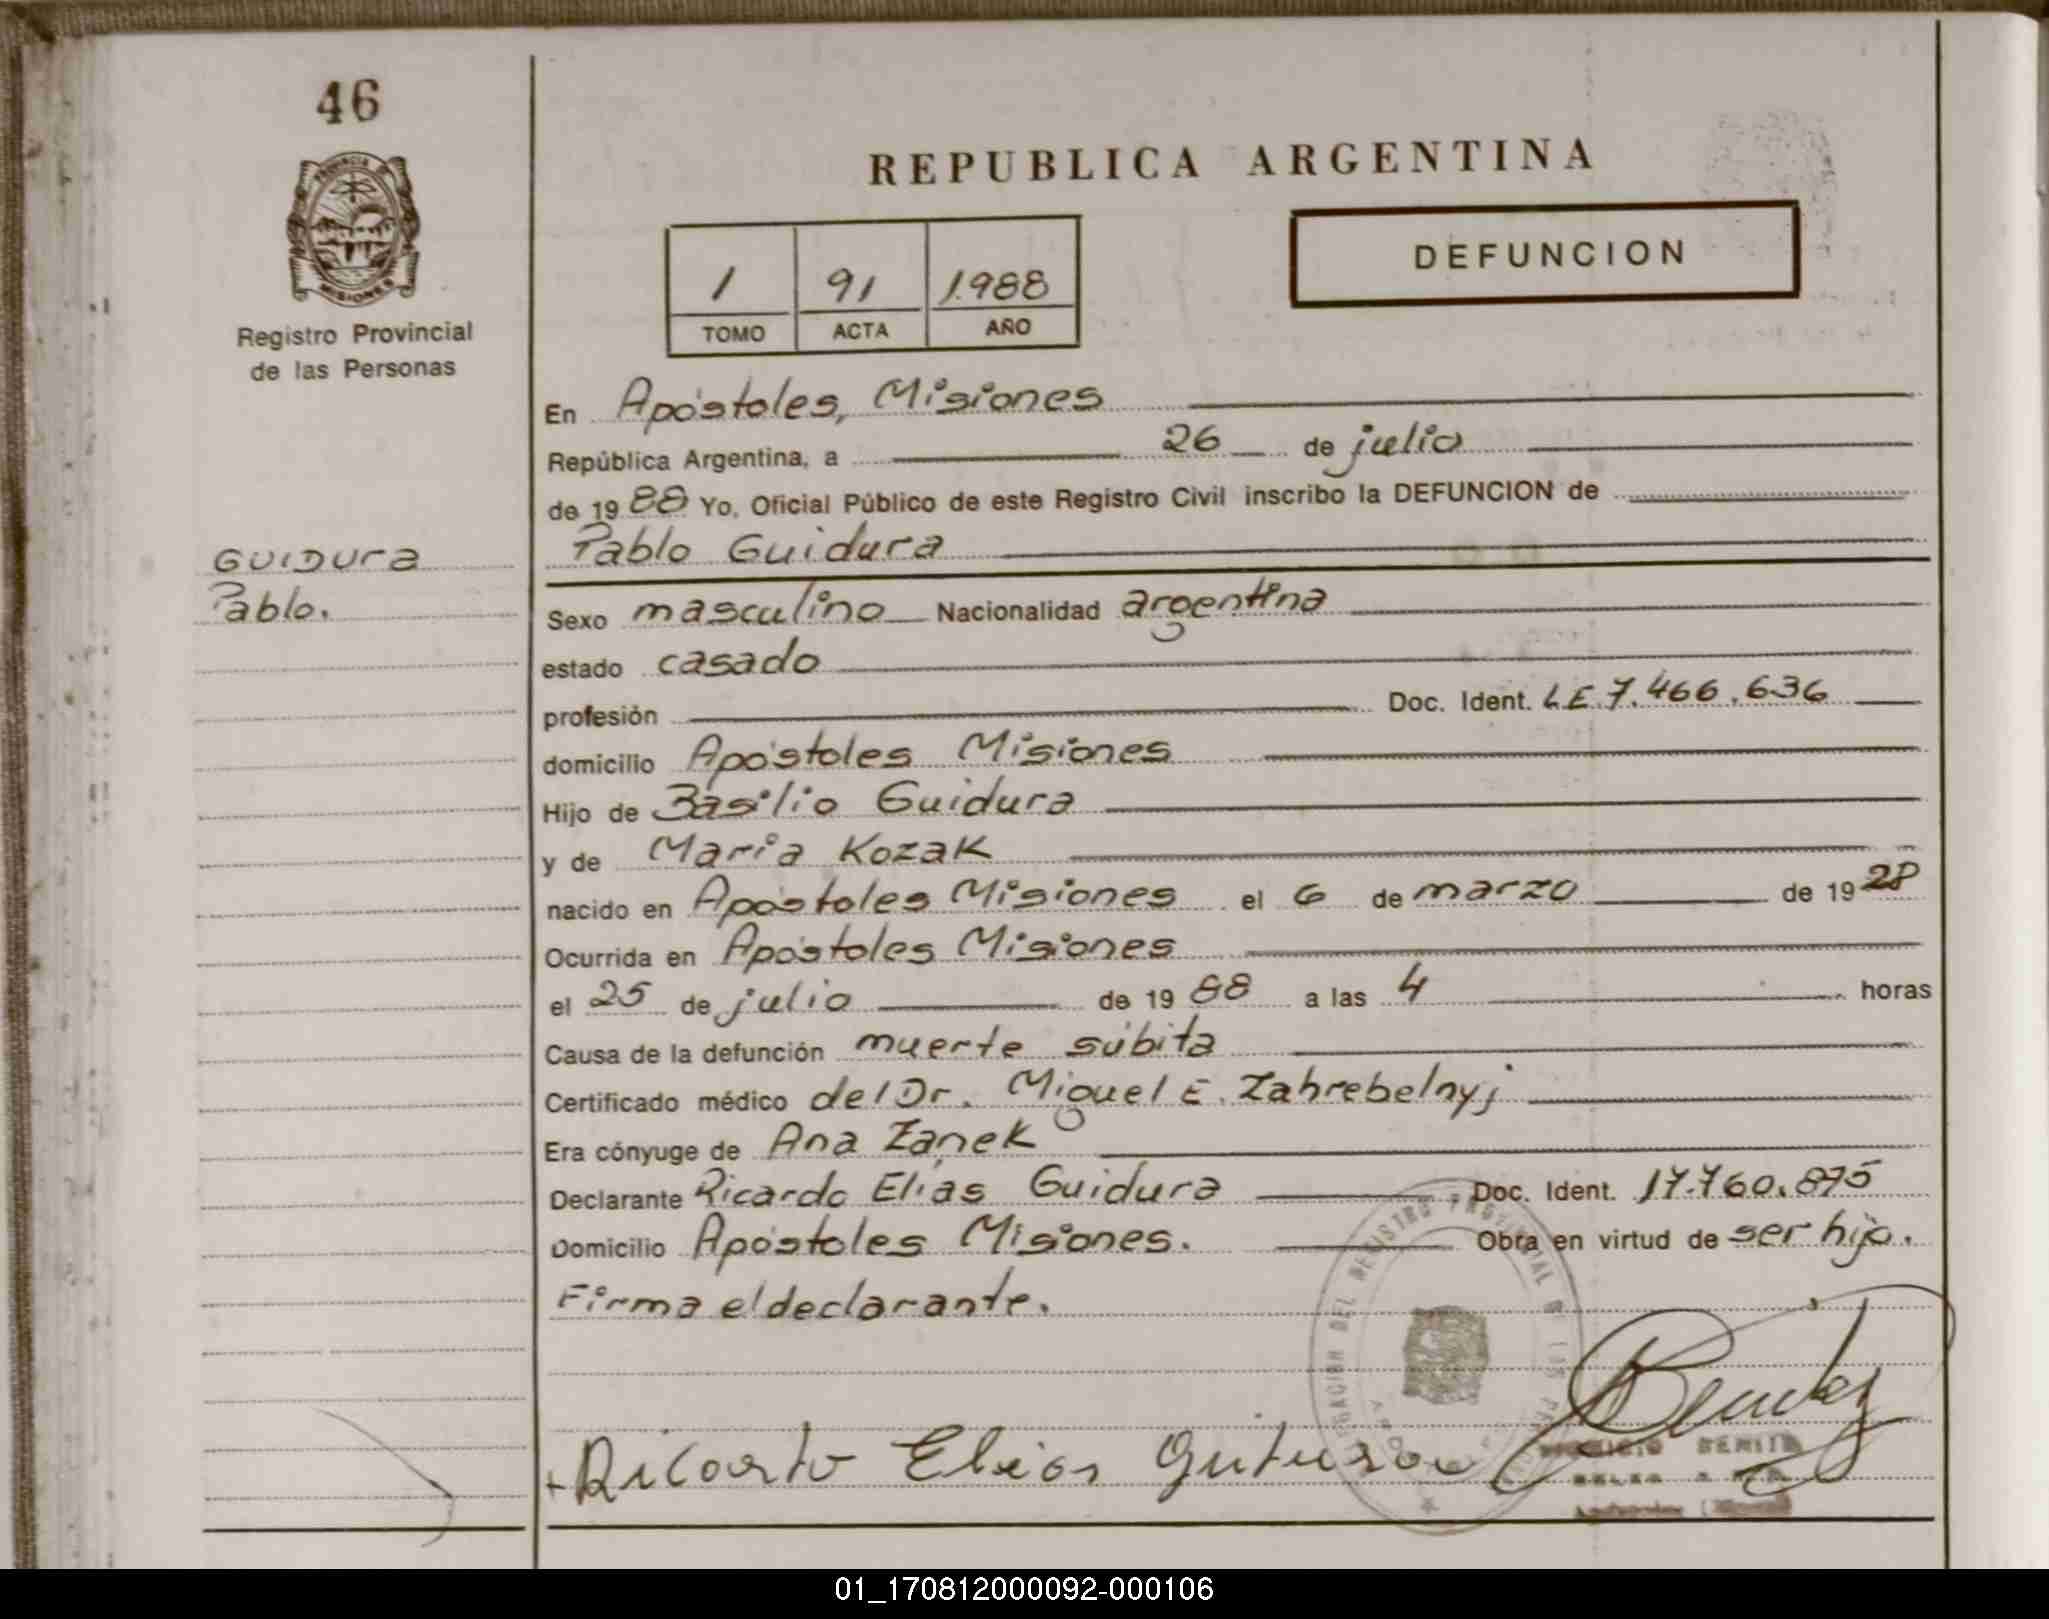 46
PROVINCIA DE
MISIONES
Registro Provincial
de las Personas
GUIDURA
Pablo.
REPUBLICA ARGENTINA
1 91 1.988
TOMO ACTA AÑO
DEFUNCION
En Apóstoles, Misiones
República Argentina, a 26 de julio
de 19 88 Yo, Oficial Público de este Registro Civil inscribo la DEFUNCION de
Pablo Guidura
Sexo masculino Nacionalidad argentina
estado casado
profesión Doc. Ident. LE.7.466.636
domicilio Apóstoles Misiones
Hijo de Basilio Guidura
y de María Kozak
nacido en Apóstoles Misiones el 6 de marzo de 19 28
Ocurrida en Apóstoles Misiones
el 25 de julio de 19 88 a las 4 horas
Causa de la defunción muerte súbita
Certificado médico del Dr. Miguel E. Zahrebelnyj
Era cónyuge de Ana Zanek
Declarante Ricardo Elías Guidura Doc. Ident. 17.760.875
Domicilio Apóstoles Misiones. Obra en virtud de ser hijo.
Firma el declarante.
DEL REGISTRO PROVINCIAL DE LAS
Ricardo Elias
01_170812000092-000106